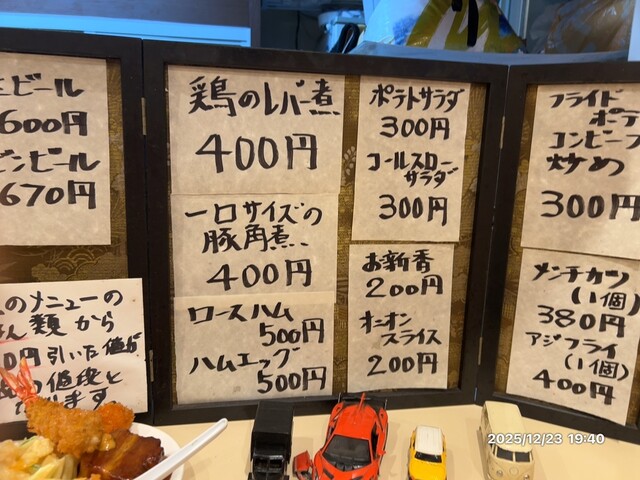 生ビール
600円
ビンビール
670円
のメニューの
類から
0円引いた値が
の値段と
ます。
鶏のレバー煮
400円
一口サイズの
豚角煮
400円
ロースハム
500円
ハムエッグ
500円
ポテトサラダ
300円
コールスロー
サラダ
300円
お新香
200円
オニオン
スライス
200円
フライド
ポテ
コンビーフ
炒め
300円
メンチカツ
(1個)
380円
アジフライ
(1個)
400円
2025/12/23 19:40